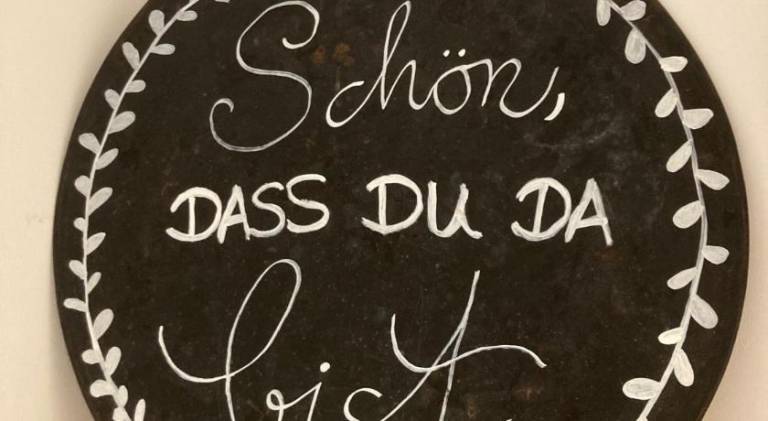 Schön,
DASS DU DA
bist.